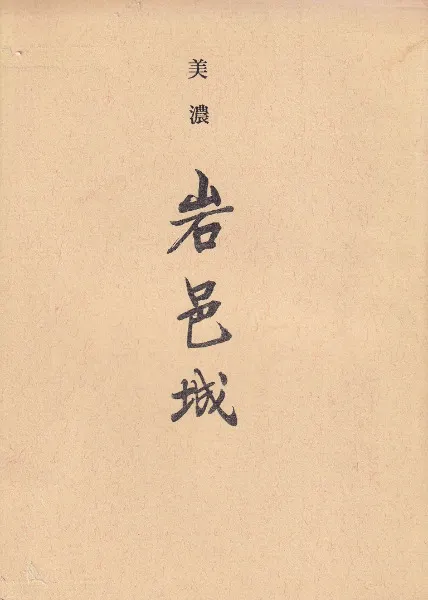 美濃
岩邑城